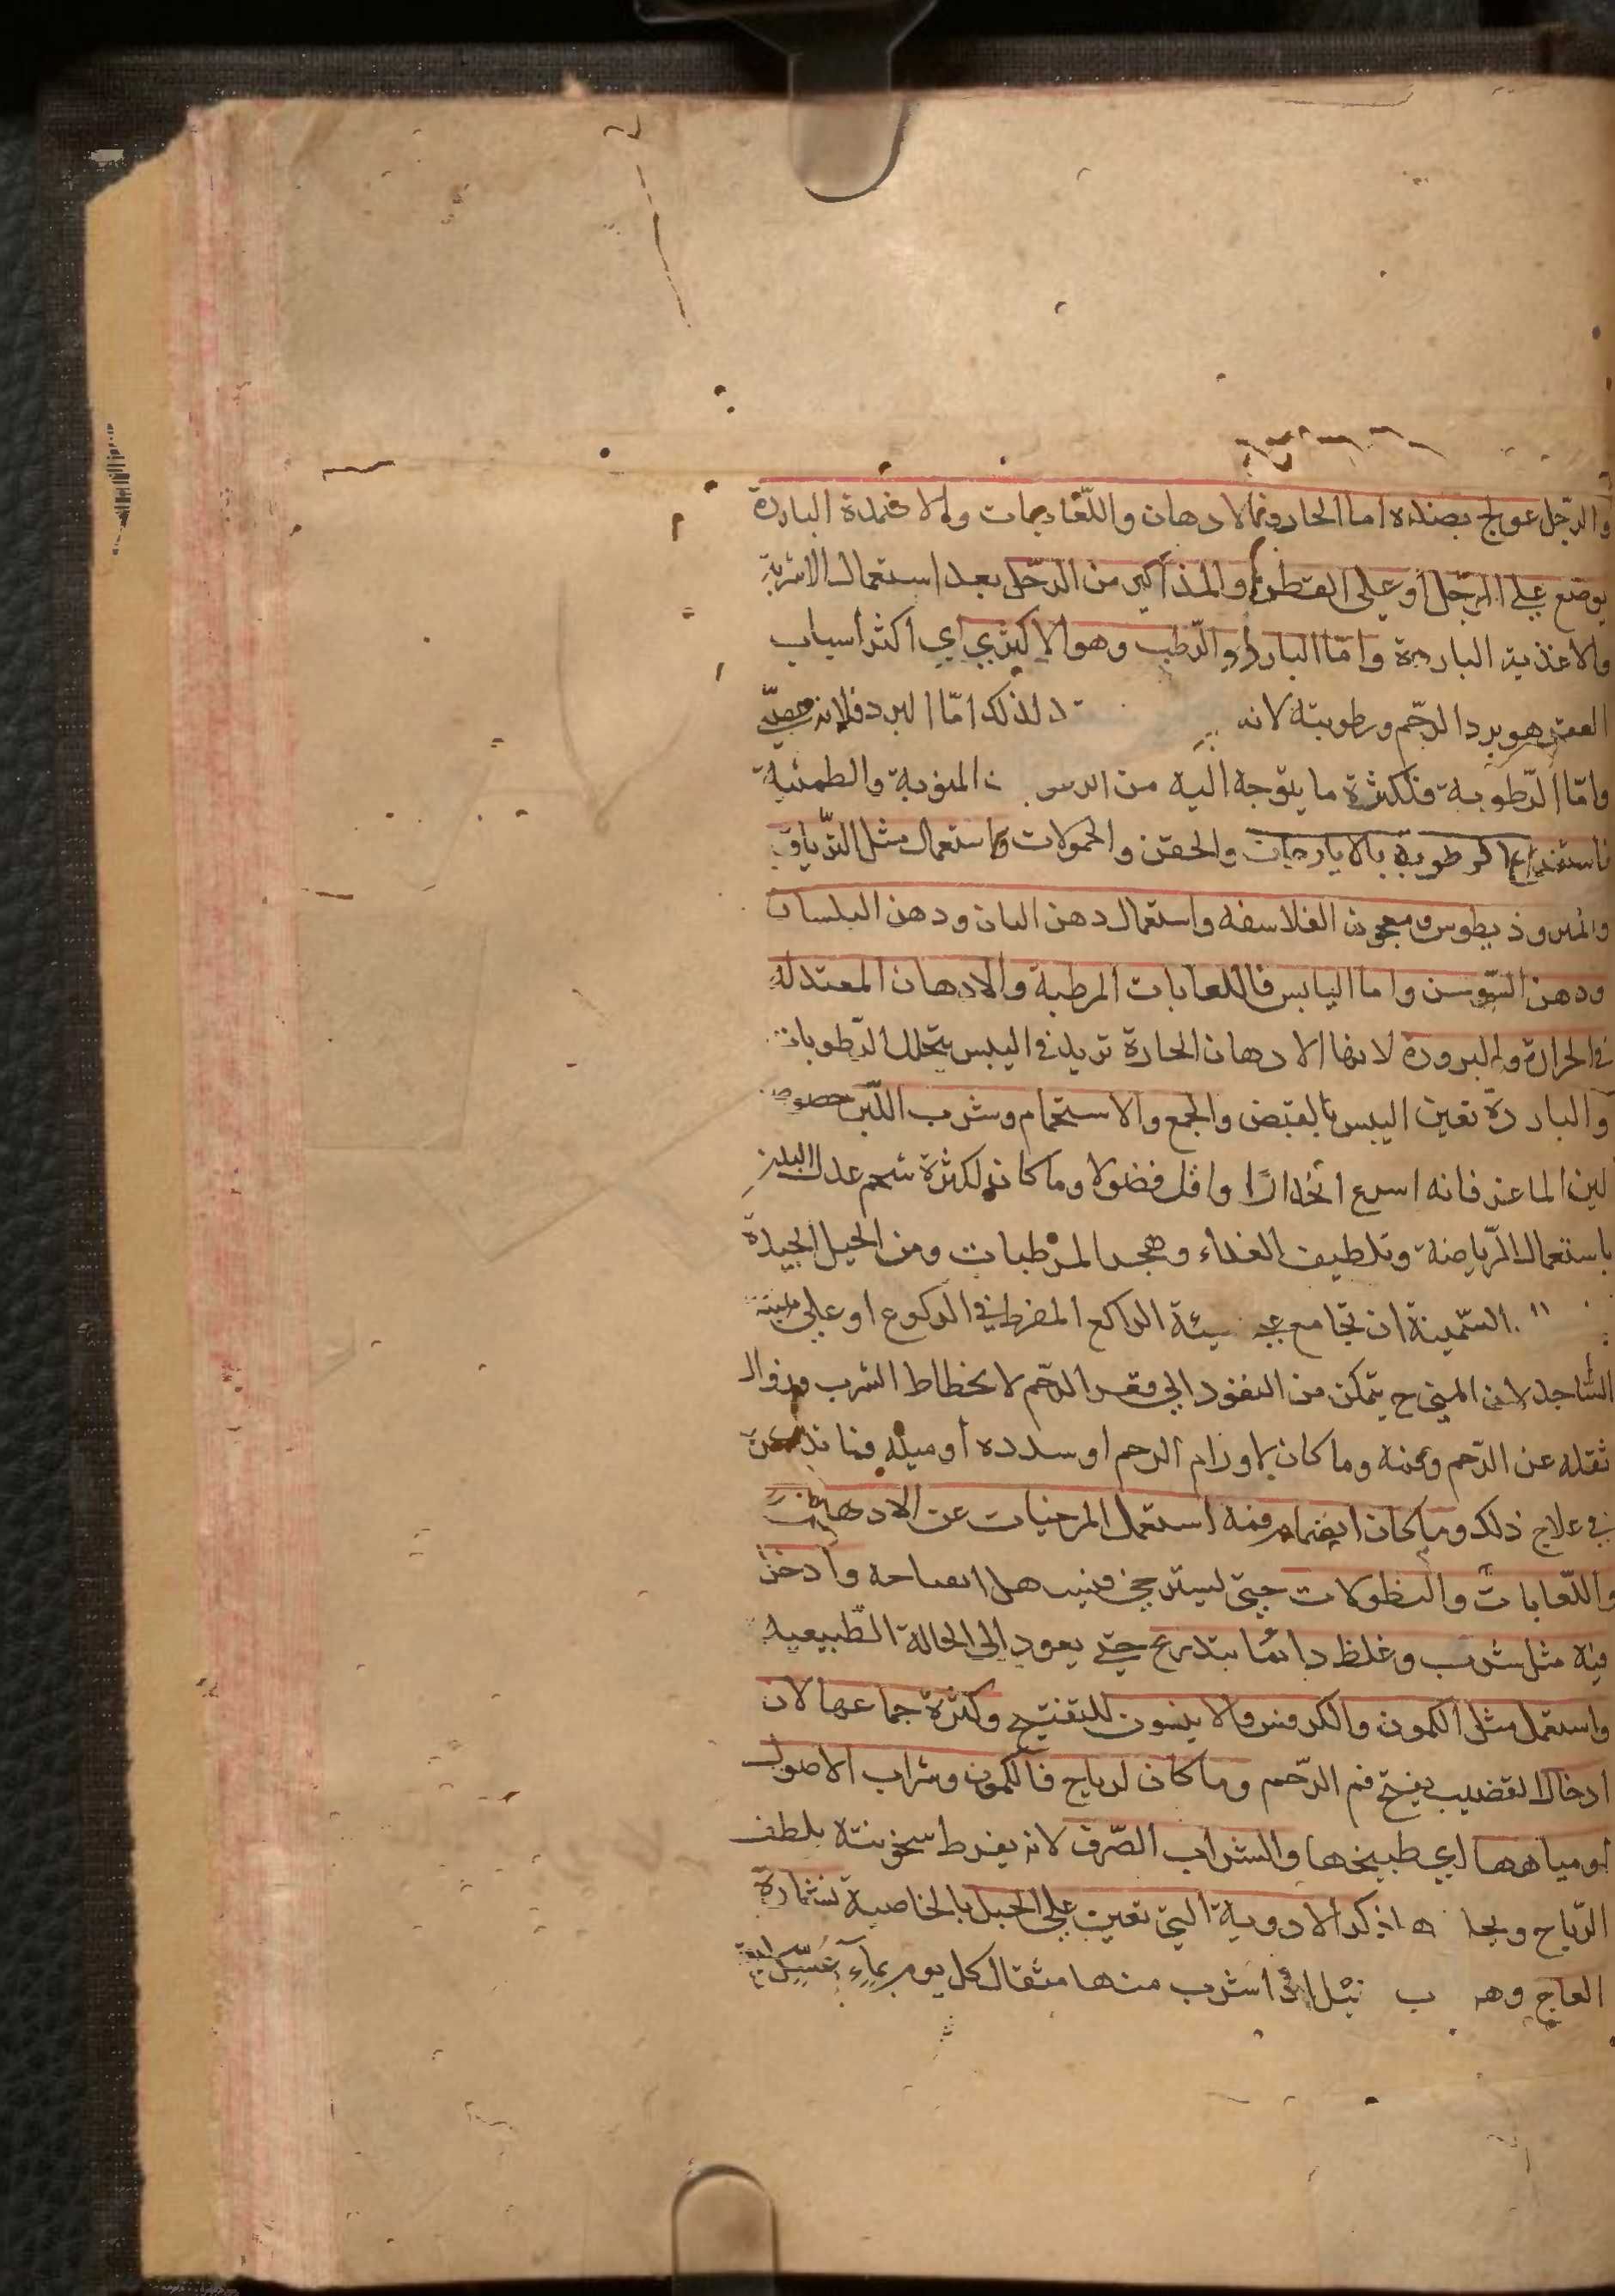 والرجل عولج بضده اما الحار فبالادهان واللعابات والاضمدة الباردة
يوضع علي الرجل او على القطن والمذاكير من الرجل بعد استعمال الاشربة
والاغذية الباردة وامّا البارد والرّطب وهو الاكثري اي اكثر اسباب
العقر هو برد الرّحم ورطوبته لانه لذلك امّا البرد فلانه
وامّا الرّطوبة فلكثرة ما يتوجه اليه من المنوية والطمثية
فاستفراغ الرطوبة بالايارجات والحقن والحمولات واستعمال مثل التّرياق
والمثروذيطوس ومعجون الفلاسفه واستعمال دهن البان ودهن البلسان
ودهن السّوسن واما اليابس فاللعابات المرطبة والادهان المعتدله
في الحرارة والبرودة لانها الادهان الحارة تزيد في اليبس بتحلل الرّطوبات
والباردة تعين اليبس بالقبض والجمع والاستحمام وشرب اللّبن خصوصا
لبن الماعز فانه اسرع انحدارًا واقل فضولا وما كان لكثرة شحم عدل البدن
باستعمال الرّياضة وتلطيف الغذاء وهجر المرطبات ومن الحيل الجيدة
السّمينة ان تجامع الراكع المفرط في الركوع او علي
السّاجد لان المني ح يتمكن من النفوذ الي قعر الرّحم لانحطاط الثرب وزوال
ثقله عن الرّحم وعنه وما كان لاورام الرحم او سدده او ميله فما
في علاج ذلك وما كان انضمام فمه استعمل المرخيات عن الادهان
واللّعابات والنطولات حتي يسترخي وادخل
فيه مثل شرب وغلظ دائما بتدريج حتي يعود الى الحالة الطّبيعيه
واستعمل مثل الكمون والكرفس والانيسون للتفتيح وكثرة جماعها لان
ادخال القضيب يفتح فم الرّحم وما كان لرياح فالكمون وشراب الاصول
او مياهها اي طبيخها والشراب الصّرف لانه يفرط سخونته يلطف
الرّياح ويحل اذكر الادوية التي تعين علي الحبل بالخاصية نشارة
العاج اذا شرب منها مثقال كل يوم بماء عسل